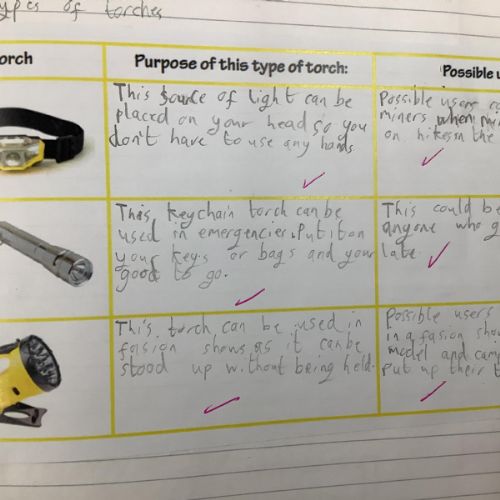 ypes of torches
orch
Purpose of this type of torch:
Possible u
This source of light can be
placed on your head so you
don't have to use any hands
Possible users co
miners when min
on hikes in the
This keychain torch can be
used in emergencies. Put it on
your keys or bags and your
good to go.
This could be
anyone who g
late.
This torch can be used in
fasion shows as it can be
stood up without being held.
Possible users
in a fasion show
model and cam
put up their t